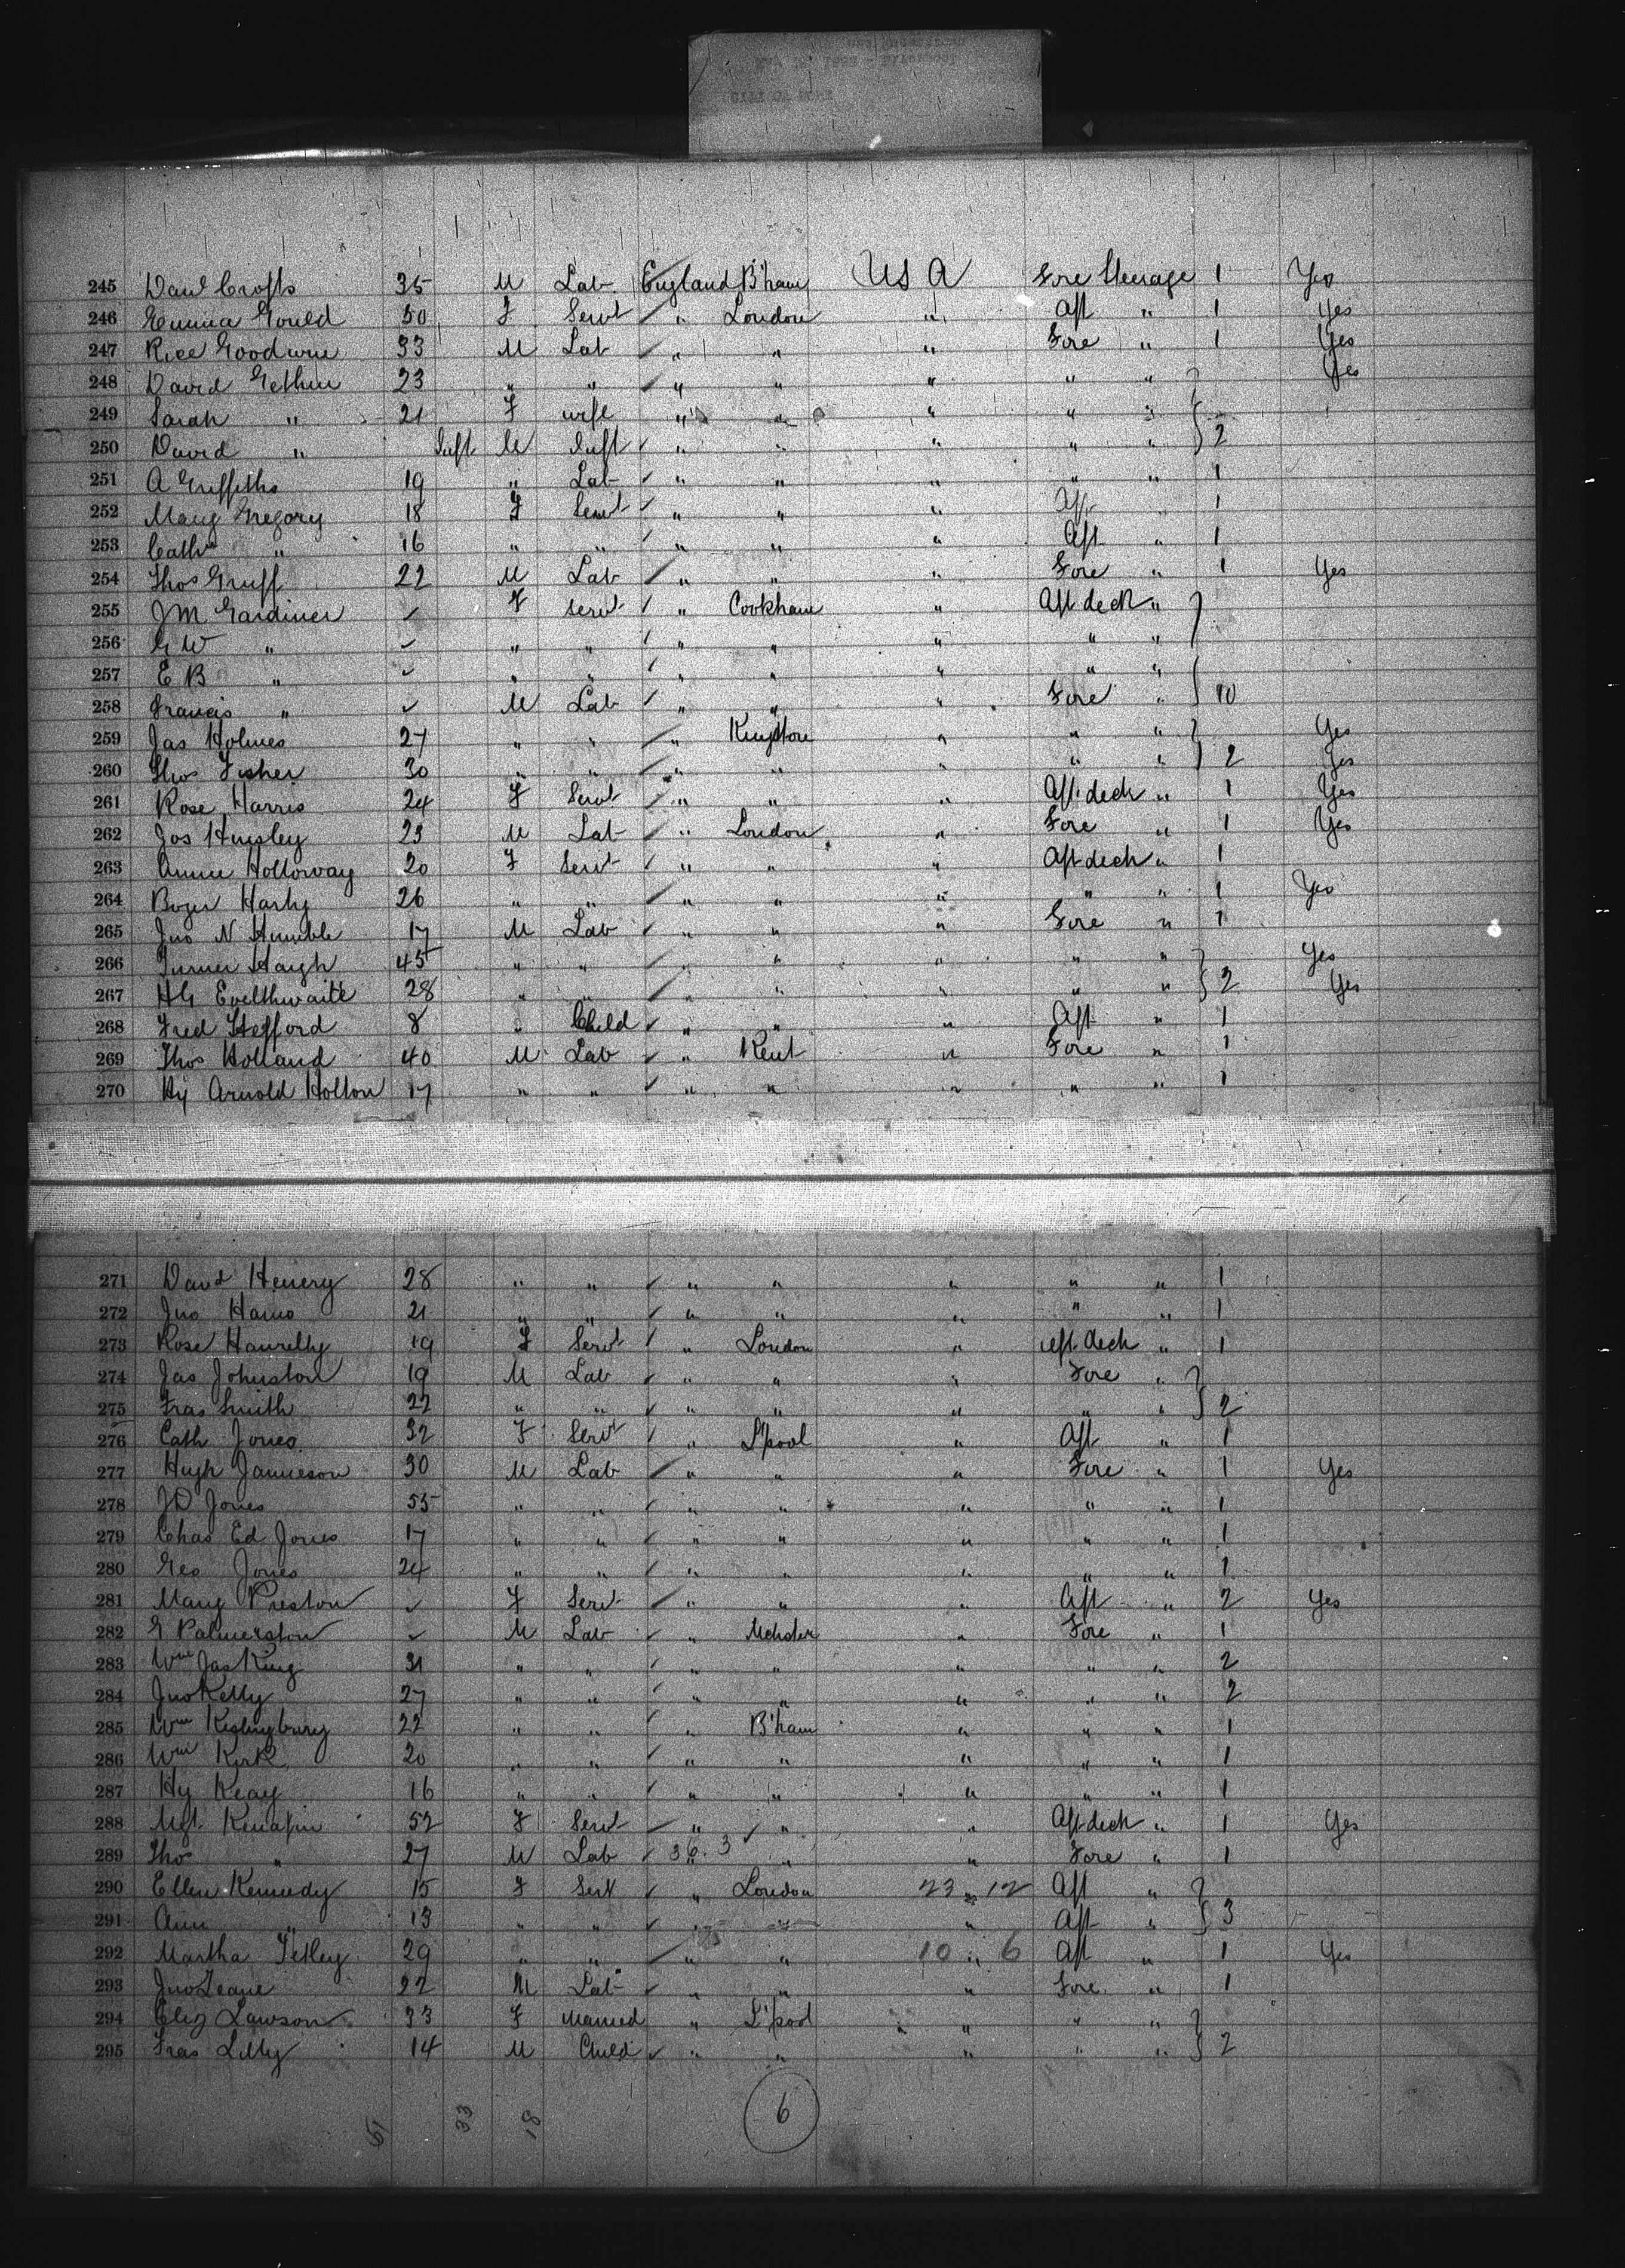 245 Davd Crofts 35 M Lab England B'ham US A Fore Steerage 1 Yes
246 Emma Gould 50 F Servt " London " Aft " 1 Yes
247 Rice Goodwin 33 M Lab " " " Fore " 1 Yes
248 David Gethin 23 " " " " " " " Yes
249 Sarah " 21 F wife " " " " "
250 David " Inft M Inft " " " " " 2
251 A Griffiths 19 " Lab " " " " " 1
252 Mary Gregory 18 F Servt " " " Aft " 1
253 Cathe " 16 " " " " " Aft " 1
254 Thos Gruff 22 M Lab " " " Fore " 1 Yes
255 J M Gardiner ✓ F Servt " Cookham " Aft deck "
256 G W " ✓ " " " " " " "
257 E B " ✓ " " " " " " "
258 Francis " ✓ M Lab " " " Fore " 10
259 Jas Holmes 27 " " " Kingston " " " Yes
260 Thos Fisher 30 " " " " " " " 2 Yes
261 Rose Harris 24 F Servt " " " Aft deck " 1 Yes
262 Jos Hinsley 23 M Lab " London " Fore " 1 Yes
263 Annie Holloway 20 F Servt " " " Aft deck " 1
264 Harty 26 " " " " " " " 1 Yes
265 Jno N Humble 17 M Lab " " " Fore " 1
266 Turner Haigh 45 " " " " " " " Yes
267 H G Evelthwaite 28 " " " " " " " 2 Yes
268 Fred Hefford 8 " Child " " " Aft " 1
269 Thos Holland 40 M Lab " Kent " Fore " 1
270 Hy Arnold Holton 17 " " " " " " " 1
271 Davd Henery 28 " " " " " " " 1
272 Jno 21 " " " " " " " 1
273 Rose 19 F Servt " London " Aft deck " 1
274 Jas Johnston 19 M Lab " " " Fore "
275 Fras Smith 22 " " " " " " " 2
276 Cath Jones 32 F Servt " L'pool " Aft " 1
277 Hugh Jamieson 30 M Lab " " " Fore " 1 Yes
278 J D Jones 55 " " " " " " " 1
279 Chas Ed Jones 17 " " " " " " " 1
280 Geo Jones 24 " " " " " " " 1
281 Mary Preston ✓ F Servt " " " Aft " 2 Yes
282 G Palmerston ✓ M Lab " Mchster " Fore " 1
283 Wm Jas King 31 " " " " " " " 2
284 Jno Kelly 27 " " " " " " " 2
285 Wm Kislingbury 22 " " " B'ham " " " 1
286 Wm Kirk 20 " " " " " " " 1
287 Hy Keay 16 " " " " " " " 1
288 Mgt 52 F Servt " " " Aft deck " 1 Yes
289 Thos " 27 M Lab 36. 3 " " Fore " 1
290 Ellen Kennedy 15 F Servt " London 23 " 12 Aft "
291 Ann " 13 " " " " " Aft " 3
292 Martha Tetley 29 " " " " 10 " 6 Aft " 1 Yes
293 Jno Leane 22 M Lab " " " Fore " 1
294 Eliz Lawson 33 F Married " L'pool " " "
295 Fras Lilly 14 M Child " " " " " 2
51 33 18 6